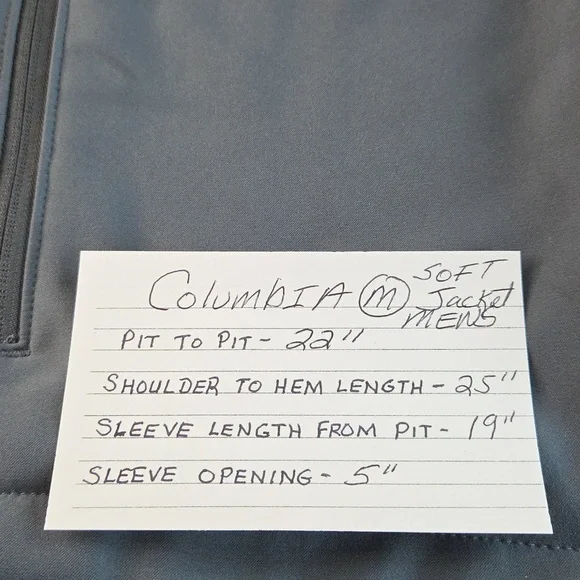 ColumbIA M SOFT Jacket MENS
PIT TO PIT - 22"
SHOULDER TO HEM LENGTH - 25"
SLEEVE LENGTH FROM PIT - 19"
SLEEVE OPENING - 5"